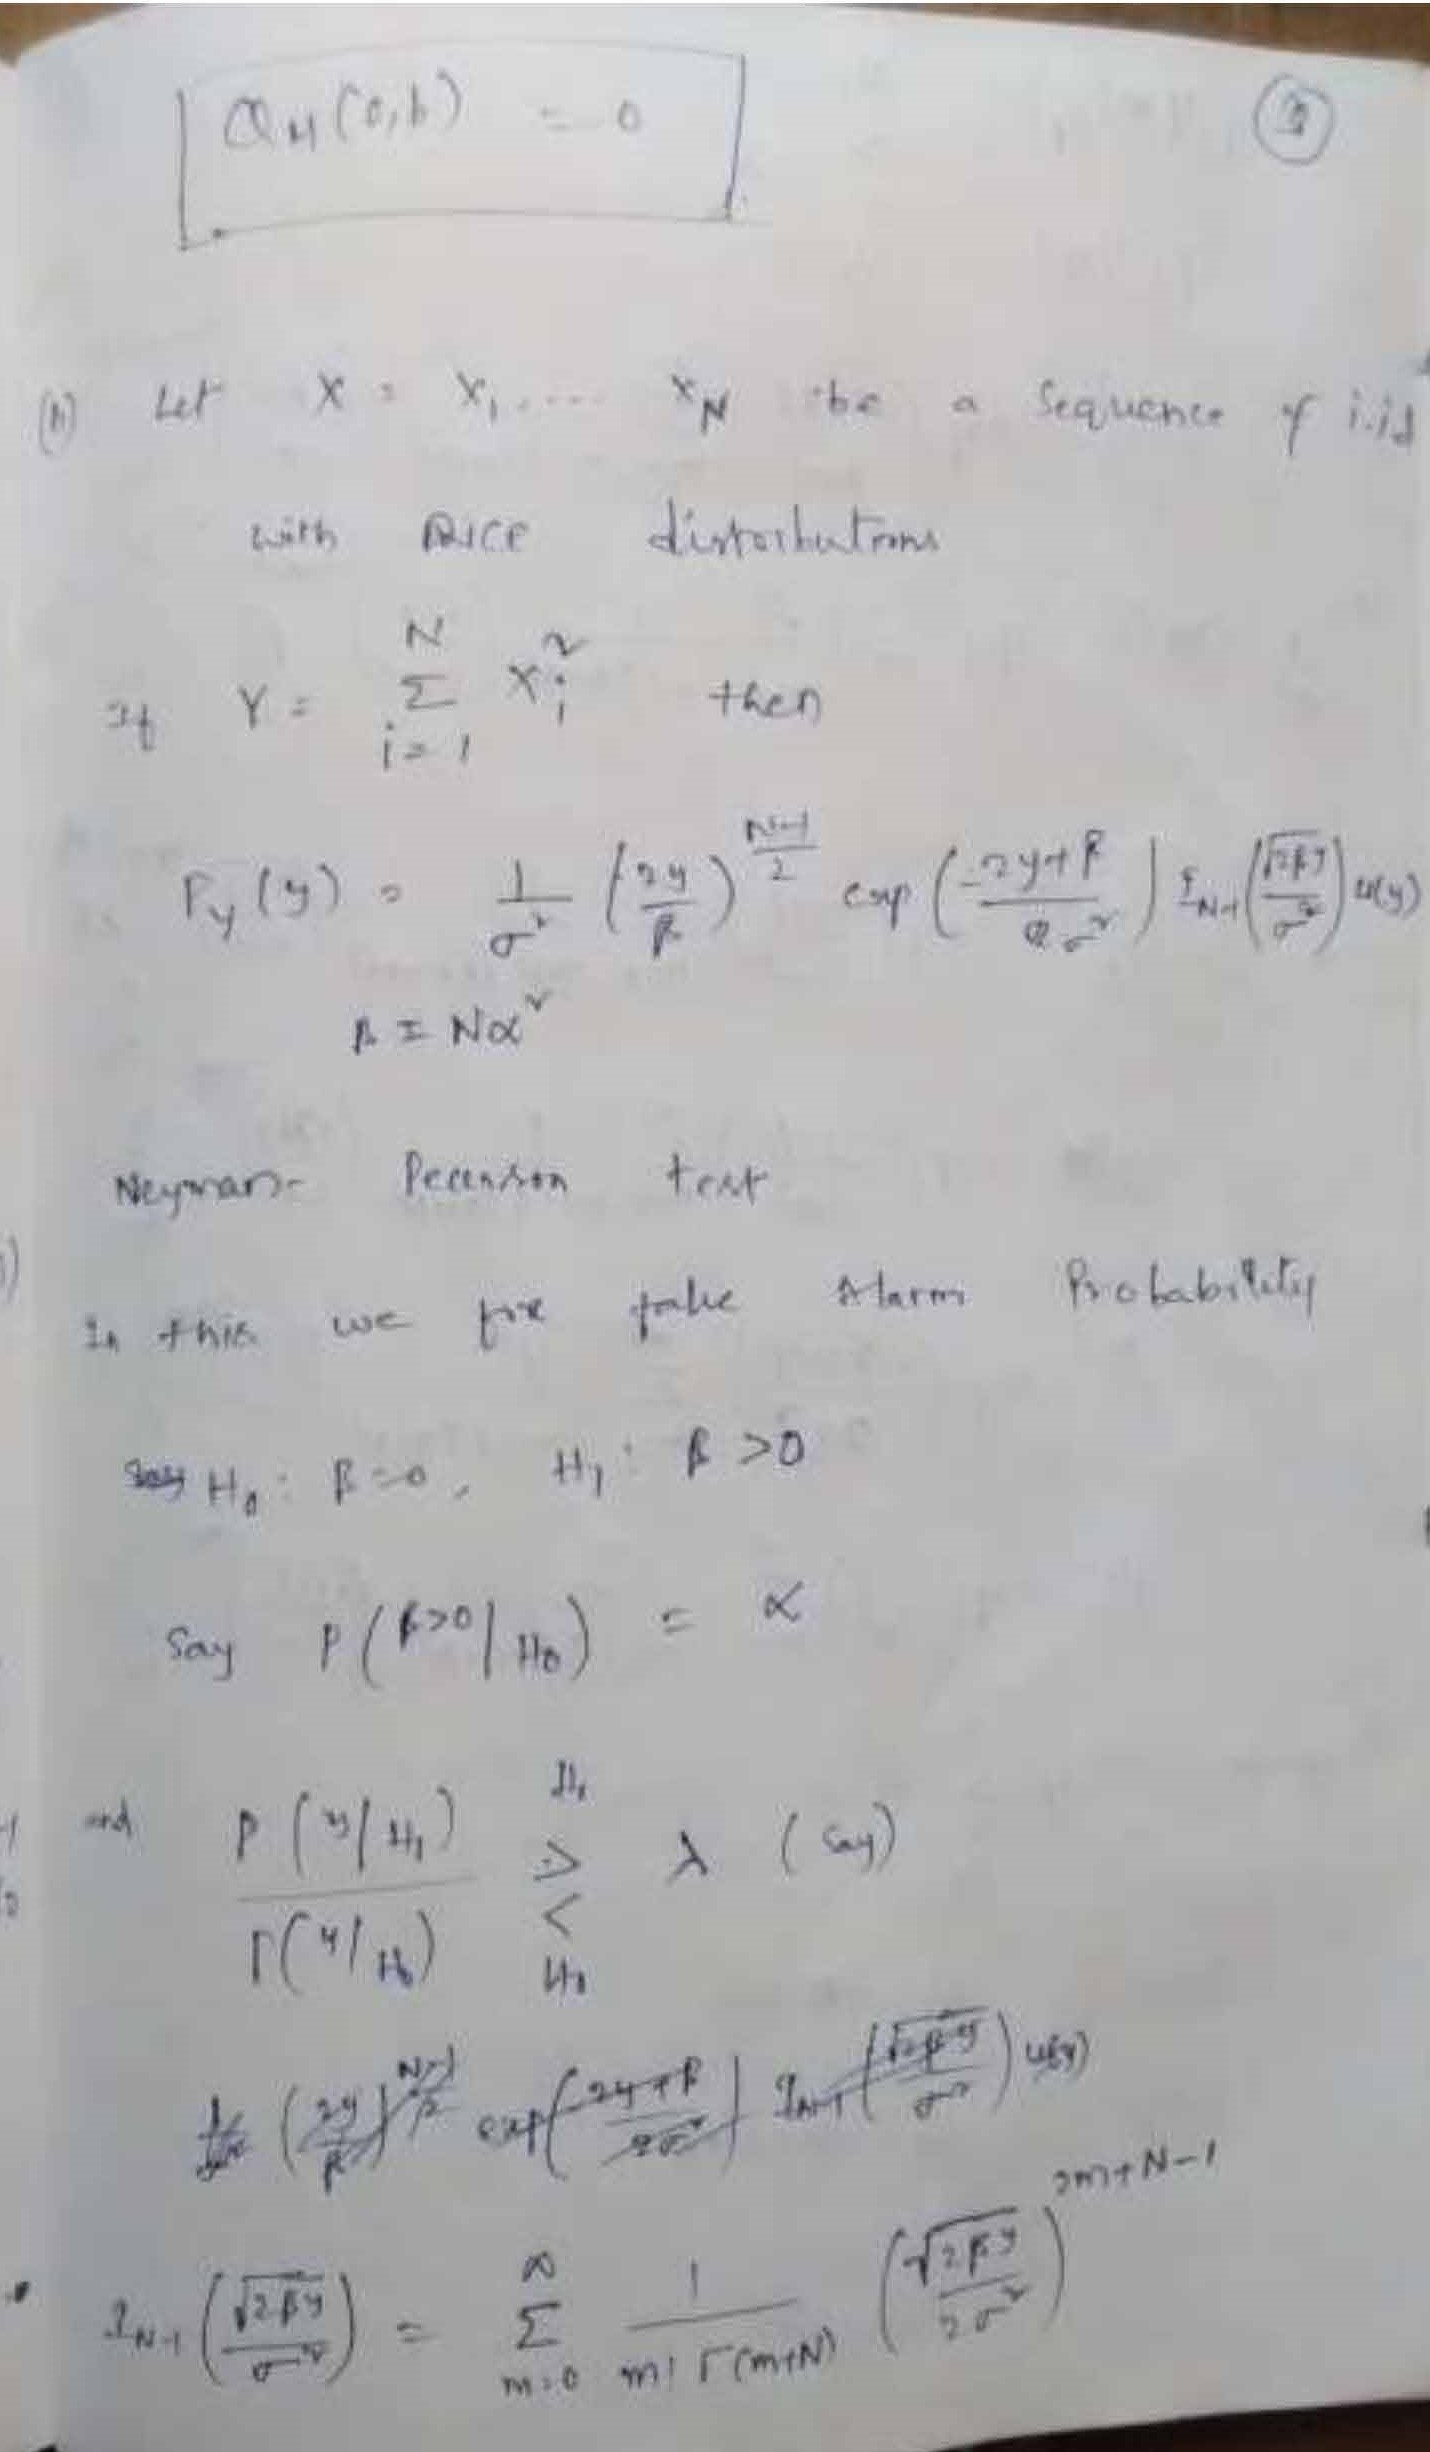 Q_M(0,b) = 0
3
(h) Let X = X₁, .... X_N be a sequence of i.i.d
with RICE distributions
If Y = Σ_{i=1}^{N} X_i² then
P_y(y) = 1/σ² (2y/β)^{(N-1)/2} exp(-(2y+β)/(2σ²)) I_{N-1}(√(2βy)/σ²) u(y)
β = Nα²
Neyman- Pearson test
In this we fix false Alarm Probability
H₀ : β=0, H₁ : β >0
Say P(β>0/H₀) = α
and P(y/H₁)/P(y/H₀) ≷^{H₁}_{H₀} λ (say)
I_{N-1}(√(2βy)/σ²) = Σ_{m=0}^{∞} 1/(m! Γ(m+N)) (√(2βy)/(2σ²))^{2m+N-1}